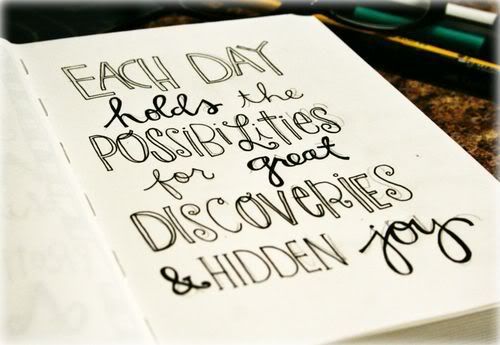 EACH DAY
holds the
POSSIBILITIES
for great
DISCOVERIES
& HIDDEN joy